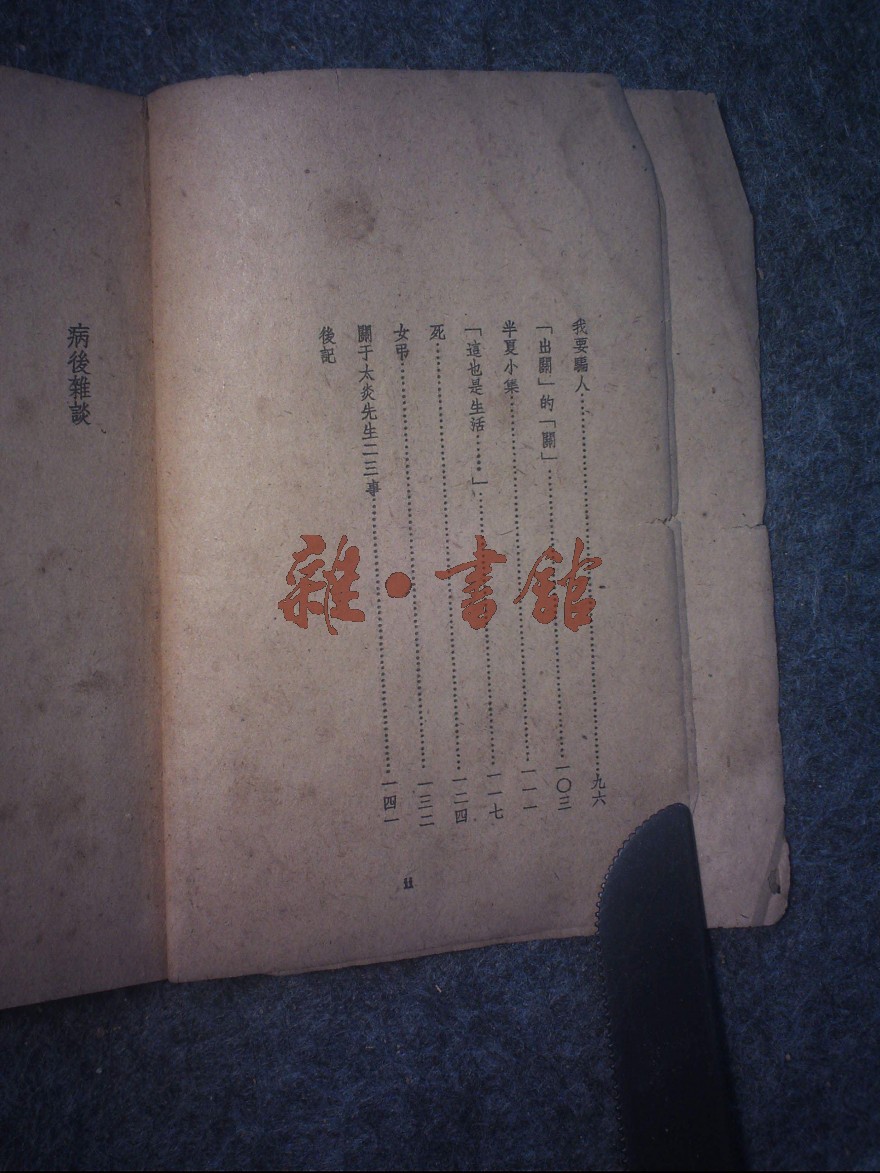 我要騙人……九六
「出關」的「關」……一〇三
半夏小集……一一一
「這也是生活……」……一一七
死……一二四
女弔……一三二
關于太炎先生二三事……一四一
後記
ii
病後雜談
雜·書館